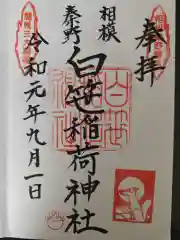 奉拝
相模
秦野
白笹稲荷神社
令和元年九月一日